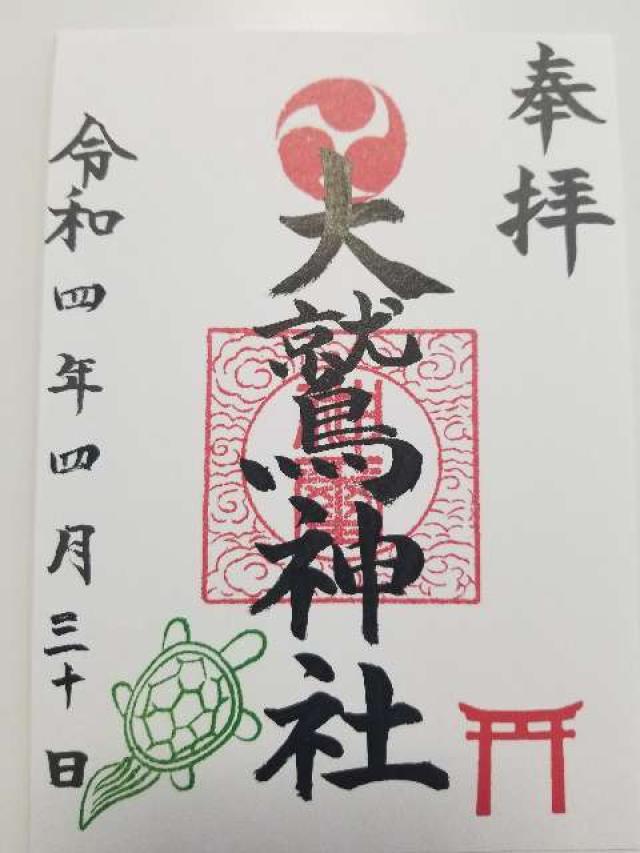 奉拝
大鷲神社
令和四年四月三十日